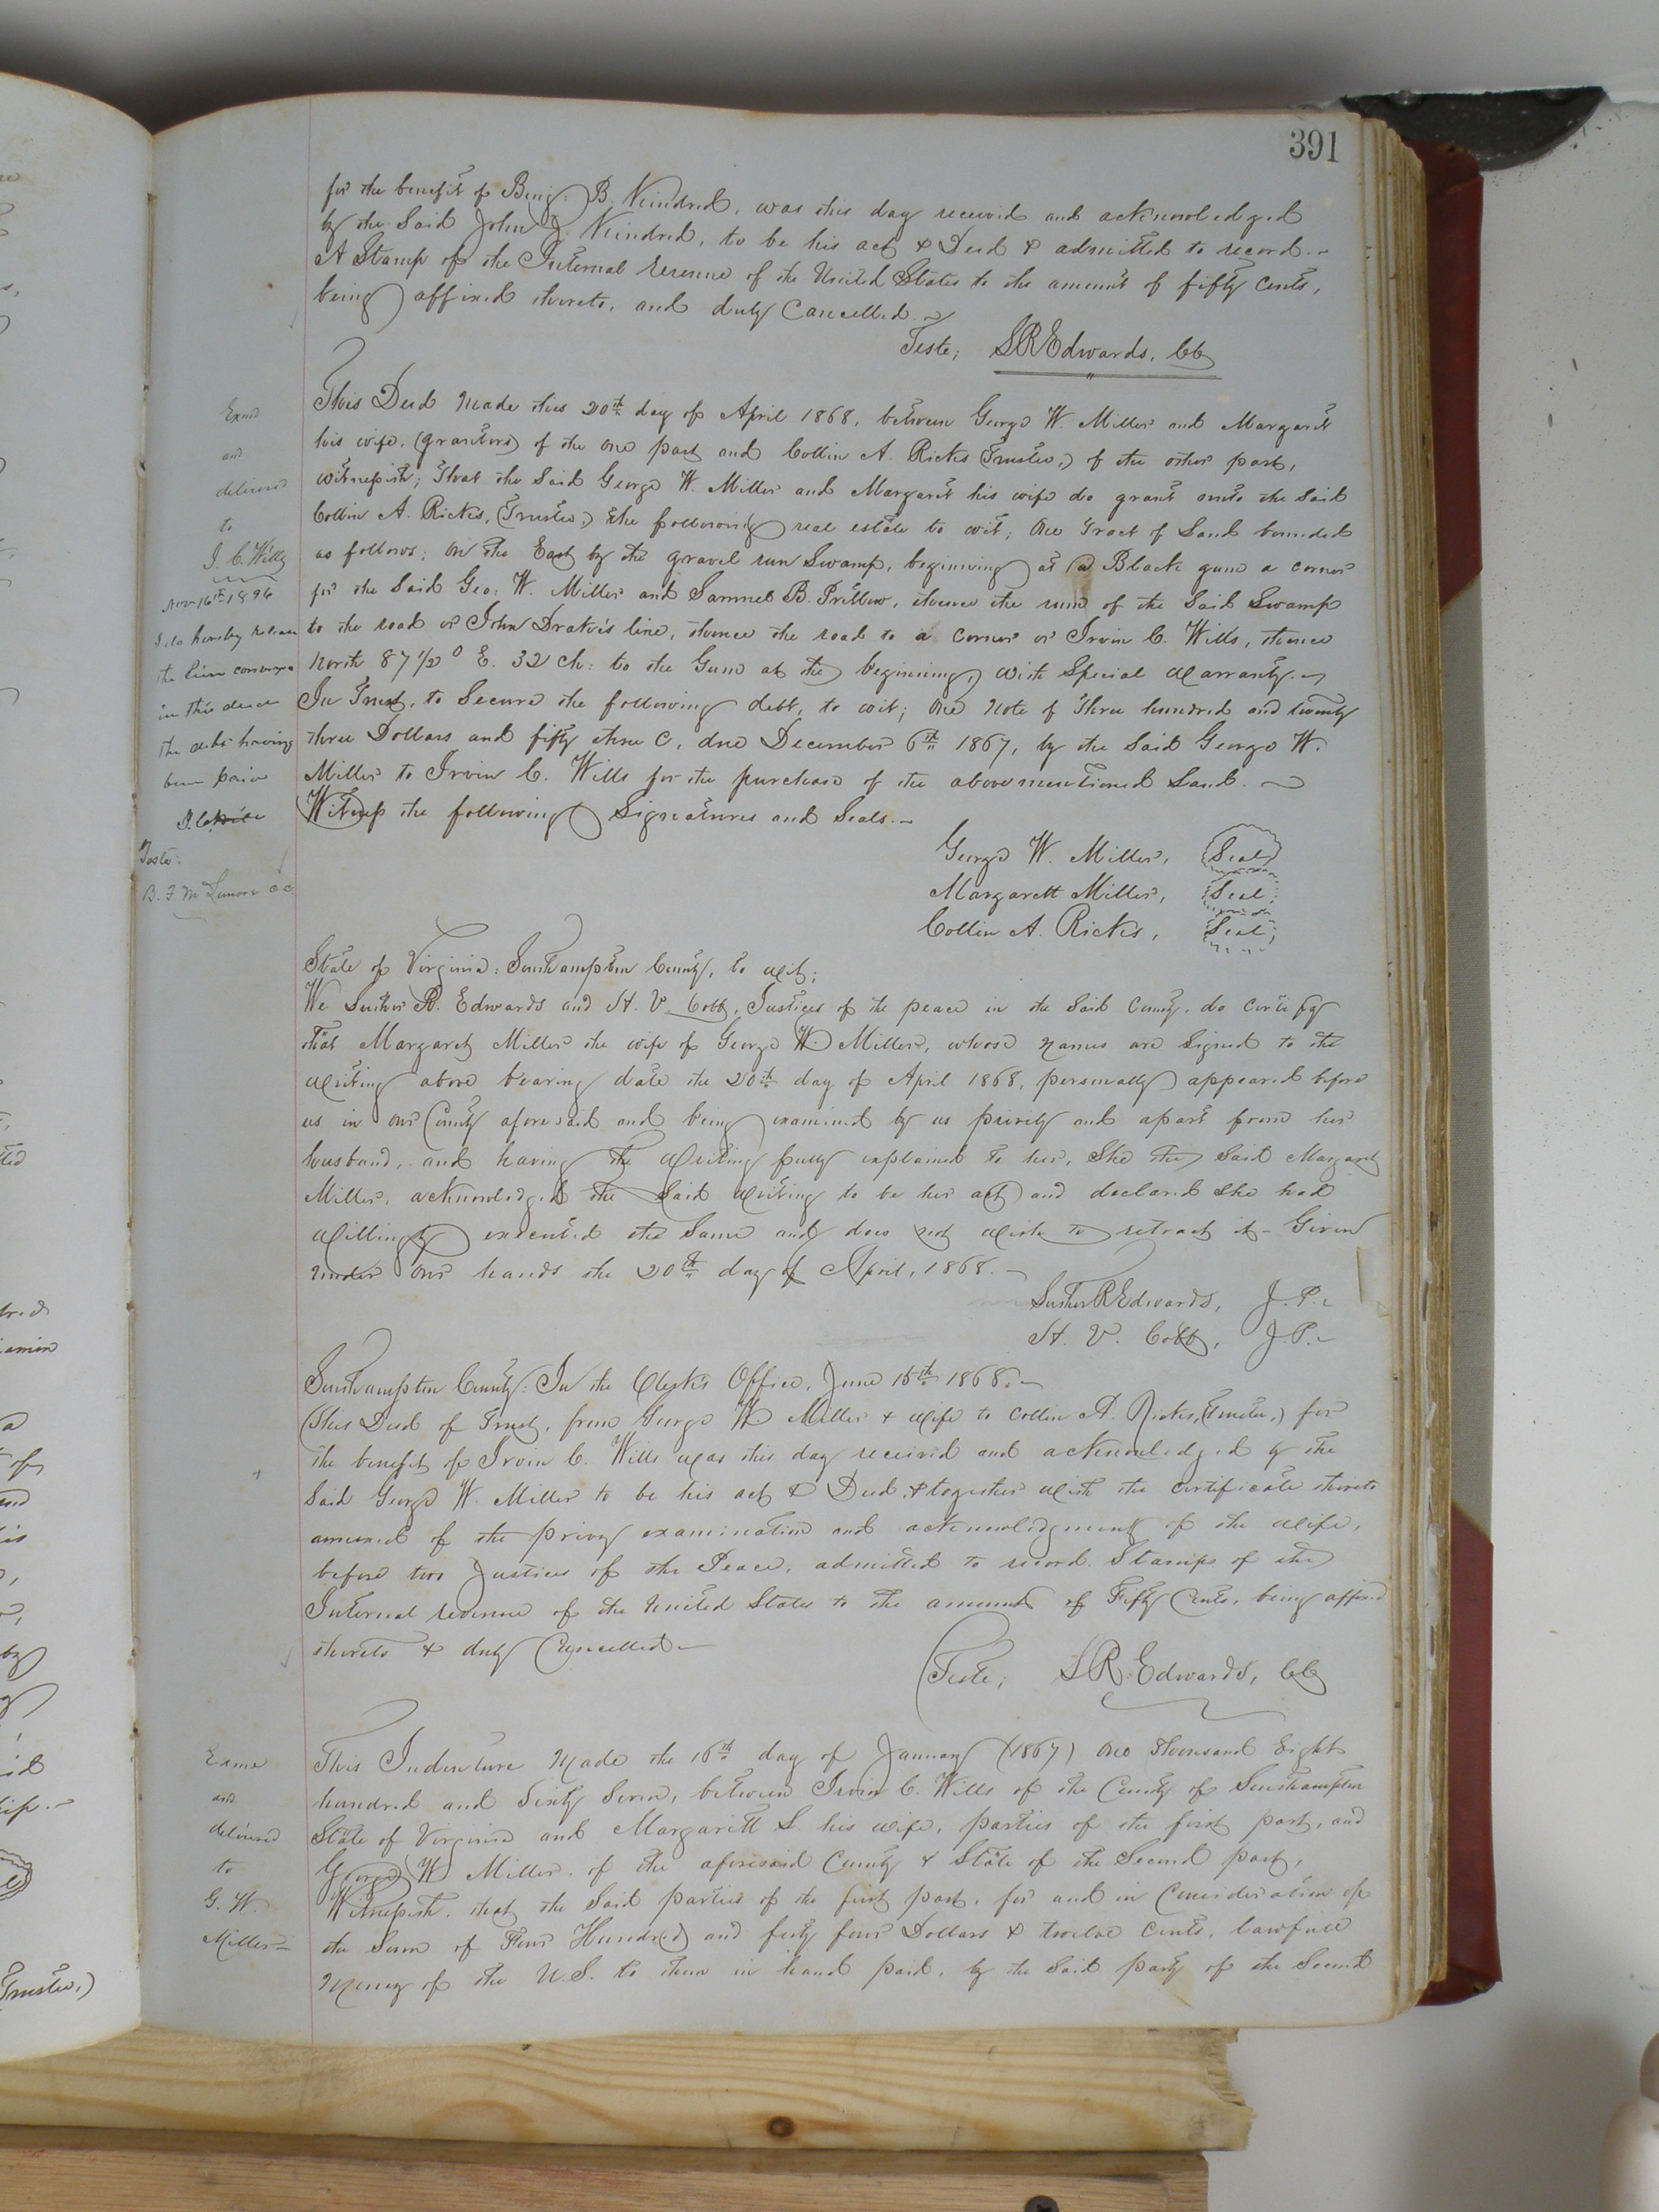 391
for the benefit of Benj: B. Kindred, was this day received and acknowledged
by the Said John J. Kindred, to be his act & Deed & admitted to record.
A Stamp of the Internal revenue of the United States to the amount of fifty Cents,
being affixed thereto, and duly Cancelled.
Teste; S R Edwards, CC
This Deed made this 20th day of April 1868, between George W. Miller and Margarett
his wife, (grantors) of the one part and Collin A. Ricks (Trustee,) of the other part,
witnesseth; That the Said George W. Miller and Margarett his wife do grant unto the Said
Collin A. Ricks, (Trustee,) the following real estate to wit; One Tract of Land bounded
as follows; on the East by the gravel run Swamp, beginning at a Black gum a corner
for the Said Geo: W. Miller and Samuel B. Pretlow, thence the run of the Said Swamp
to the road or John Drake's line, thence the road to a corner or Irvin C. Wills, thence
North 87 1/2° E. 32 ch: to the Gum at the beginning, with Special warranty.
In Trust, to Secure the following debt, to wit; One note of Three hundred and twenty
three Dollars and fifty three C, due December 6th 1867, by the Said George W.
Miller to Irvin C. Wills for the purchase of the abovementioned Land.
Witness the following Signatures and Seals.
George W. Miller, Seal
Margarett Miller, Seal
Collin A. Ricks, Seal
Examd
and
delivered
to
I. C. Wills
Nov 16th 1896
I do hereby release
the lien conveyed
in this deed
the debt having
been paid
Teste:
State of Virginia: Southampton County, to wit;
We Luther R. Edwards and H. V. Cobb, Justices of the peace in the Said County, do certify
that Margaret Miller the wife of George W. Miller, whose names are Signed to the
writing above bearing date the 20th day of April 1868, personally appeared before
us in our County aforesaid and being examined by us privily and apart from her
husband, and having the writing fully explained to her, She the Said Margaret
Miller, acknowledged the Said writing to be her act and declared She had
willingly executed the Same and does not wish to retract it - Given
under our hands the 20th day of April, 1868.
Luther R Edwards, J. P.
H. V. Cobb, J. P.
Southampton County: In the Clerk's Office, June 15th 1868.
This Deed of Trust, from George W Miller & wife to Collin A. Ricks, (Trustee,) for
the benefit of Irvin C. Wills was this day received and acknowledged by the
Said George W. Miller to be his act & Deed, & together with the certificate thereto
annexed of the privy examination and acknowledgment of the wife,
before two Justices of the Peace, admitted to record. Stamps of the
Internal revenue of the United States to the amount of Fifty Cents, being affixed
thereto & duly Cancelled
Teste; S R. Edwards, CC
This Indenture made the 16th day of January (1867) One Thousand Eight
hundred and Sixty Seven, between Irvin C. Wills of the County of Southampton
State of Virginia and Margarett S. his wife, parties of the first part, and
George W Miller, of the aforesaid County & State of the Second part,
Witnesseth, that the Said parties of the first part, for and in Consideration of
the Sum of Four Hundred and forty four Dollars & twelve Cents, lawfull
money of the U.S. to them in hand paid, by the Said party of the Second
Examd
and
delivered
to
G. W.
Miller